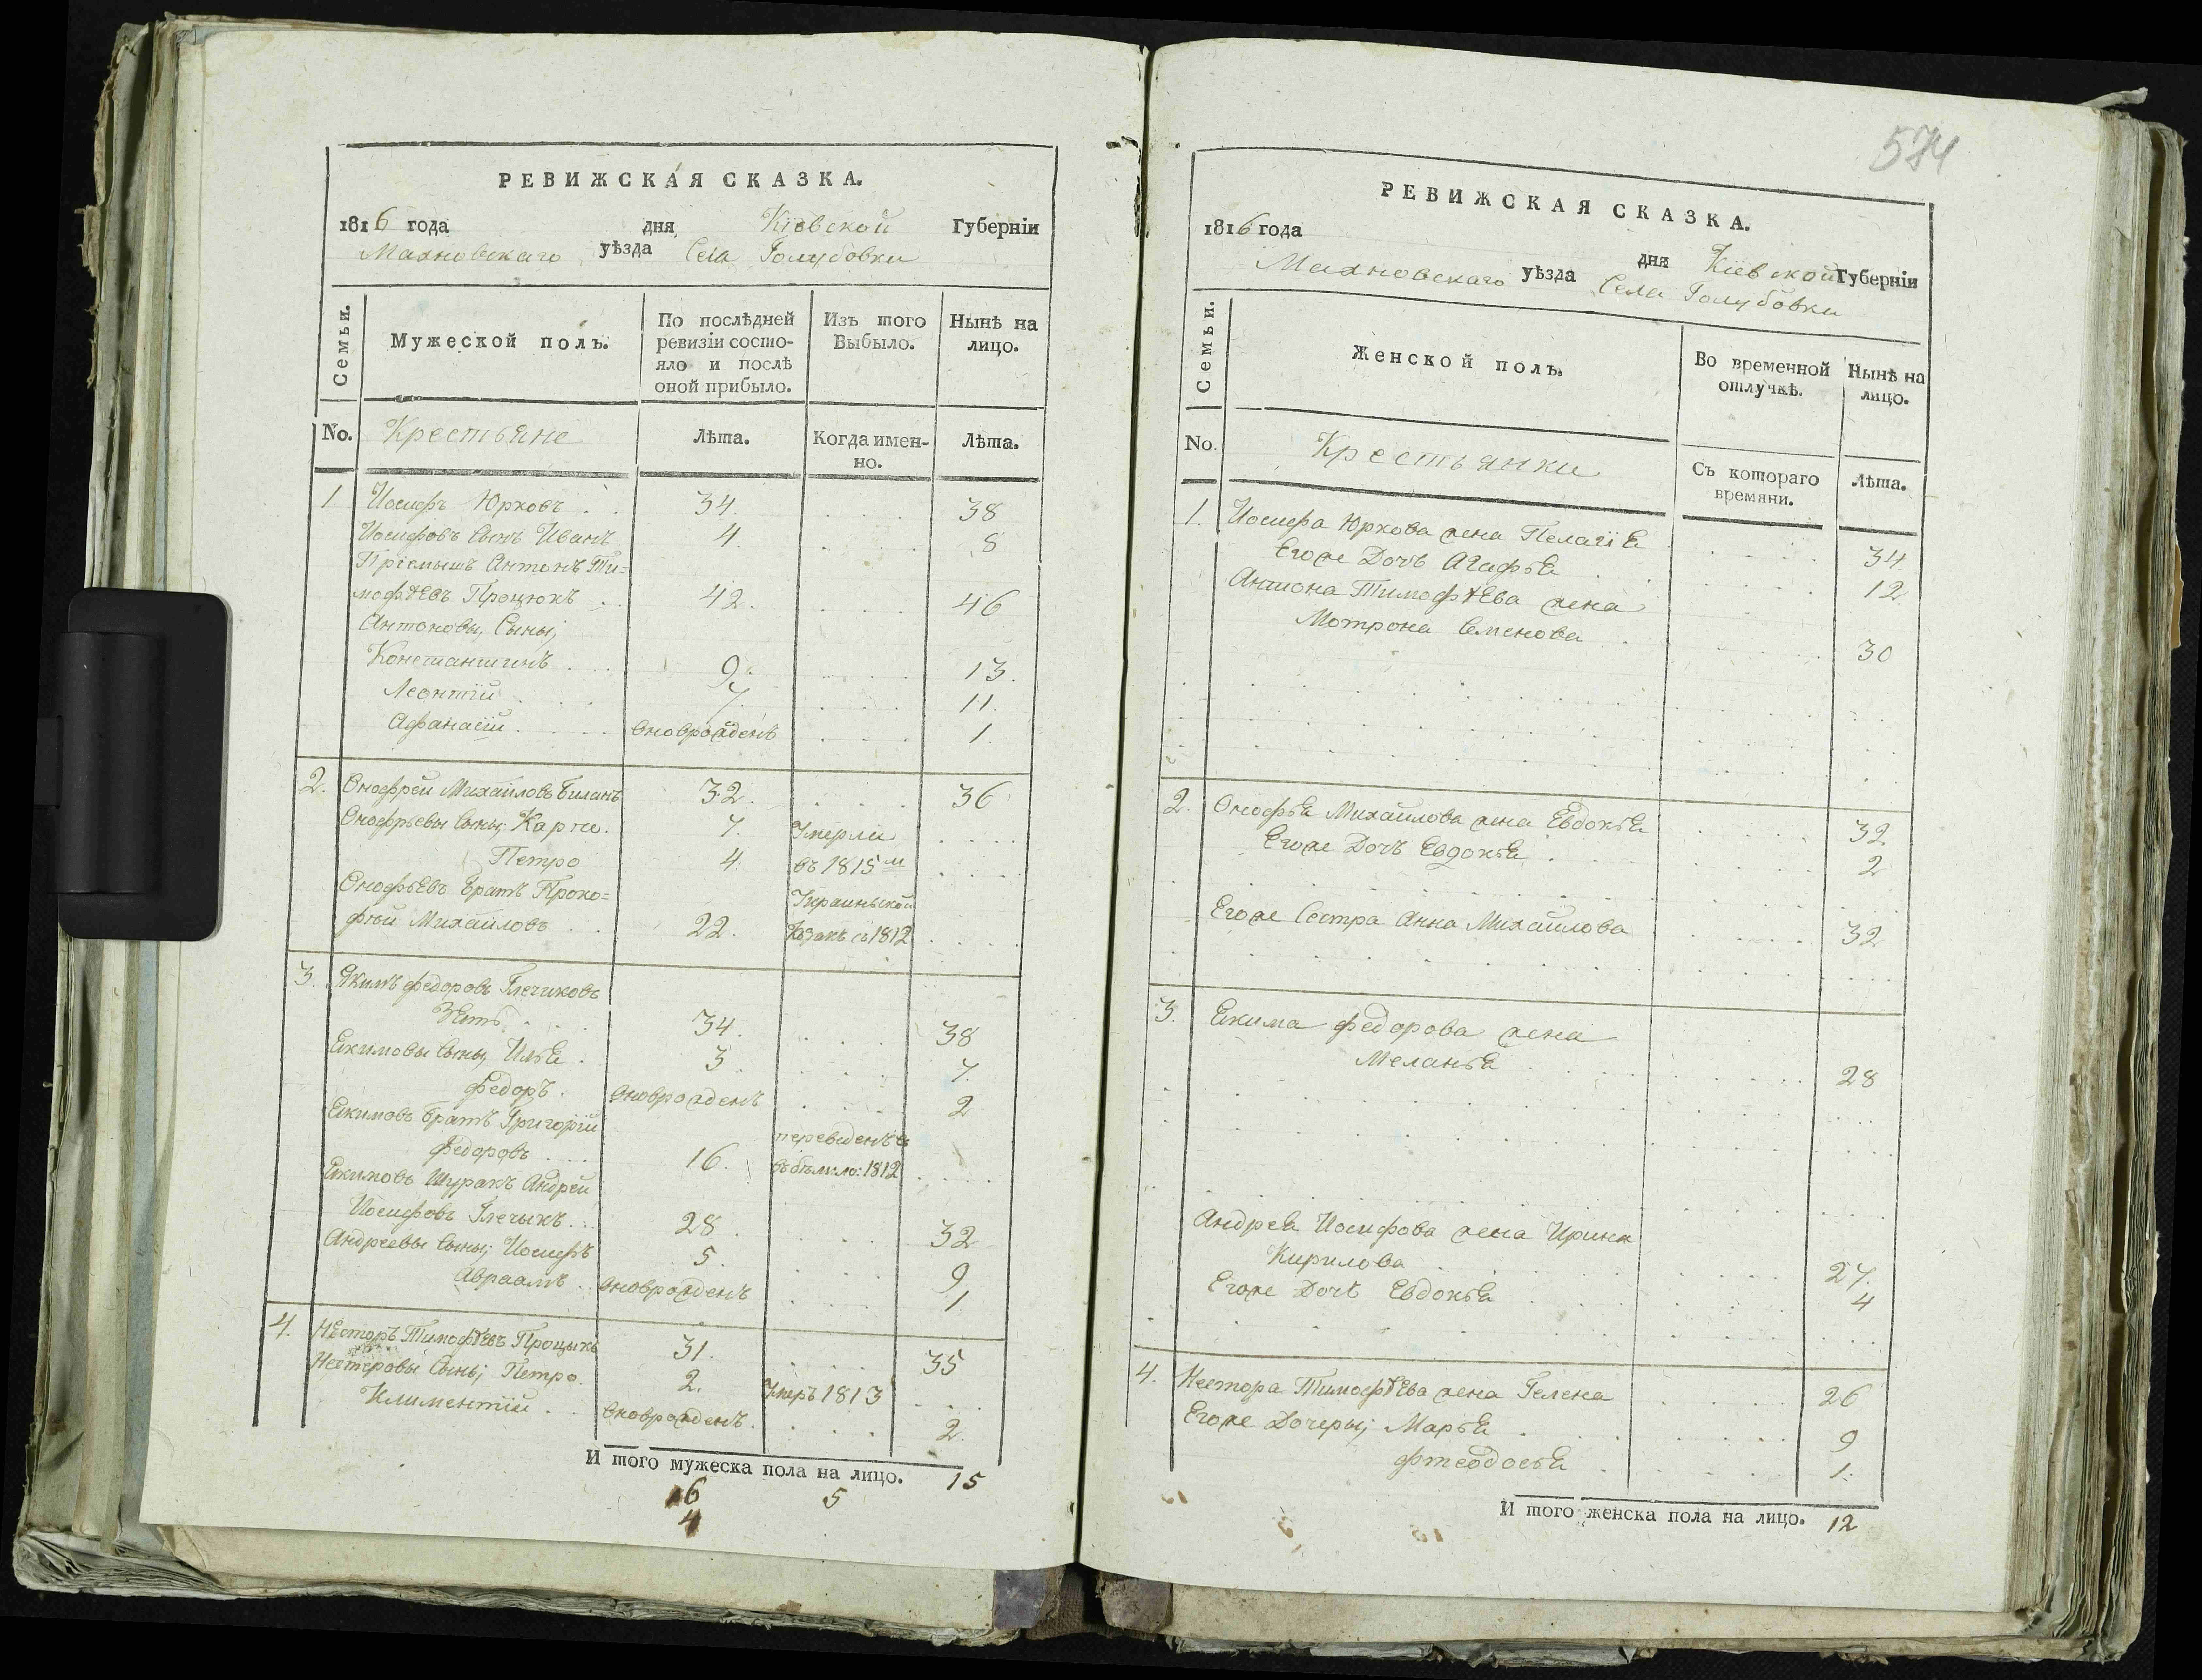 574
РЕВИЖСКАЯ СКАЗКА.
1816 года дня Кіевской Губерніи
Махновскаго уѣзда Села Голубовки
Семьи.
Мужеской полъ.
По послѣдней ревизіи состо-
яло и послѣ
оной прибыло.
Изъ того
Выбыло.
Нынѣ на
лицо.
No. Крестьяне Лѣта. Когда имен-
но. Лѣта.
1 Іосифъ Юрковъ 34. 38
Іосифовъ Сынъ Иванъ 4. 8
Пріемышъ Антонъ Ти=
мофѣевъ Процюкъ 42. 46
Антоновы Сыны;
Константинъ 9. 13.
Леонтій 7. 11.
Афанасій вноврожденъ 1.
2. Онофрей Михайловъ Биланъ 32. 36
Онофрѣевы Сыны; Карпо. 7. Умерли
Петро 4. въ 1815м
Онофрѣевъ братъ Проко=
фѣй Михайловъ 22. с 1812
3. Якимъ Федоровъ Глечиковъ
Зять 34. 38
Якимовы Сыны; Илья 3 7.
Федоръ. вноврожденъ 2
Якимовъ братъ Григорій
Федоровъ 16. переведенъ 1812
Якимовъ Шуракъ Андрей
Іосифовъ Глечыкъ 28. 32
Андреевы Сыны; Іосифъ 5. 9
Авраамъ вноврожденъ 1
4. Несторъ Тимофѣевъ Процыкъ 31. 35
Нестеровы Сыны; Петро 2. Умеръ 1813
Климентій вноврожденъ 2.
И того мужеска пола на лицо. 15
16 5
4
РЕВИЖСКАЯ СКАЗКА.
1816 года дня Кіевской Губерніи
Махновскаго уѣзда Села Голубовки
Семьи.
Женской полъ.
Во временной
отлучкѣ.
Нынѣ на
лицо.
No. Крестьянки Съ котораго
времяни. Лѣта.
1. Іосифа Юркова жена Пелагія 34
Егоже Дочь Агафья 12
Антона Тимофѣева жена
Мотрона Семенова 30
2. Онофрѣя Михайлова жена Евдокья 32
Егоже Дочь Евдокья 2
Егоже Сестра Анна Михайлова 32
3. Якима Федорова жена
Меланья 28
Андрея Іосифова жена Ирина
Кирилова 27.
Егоже Дочь Евдокья 4
4. Нестора Тимофѣева жена Гелена 26
Егоже Дочеры; Марья 9
Фтеодосья 1.
И того женска пола на лицо. 12